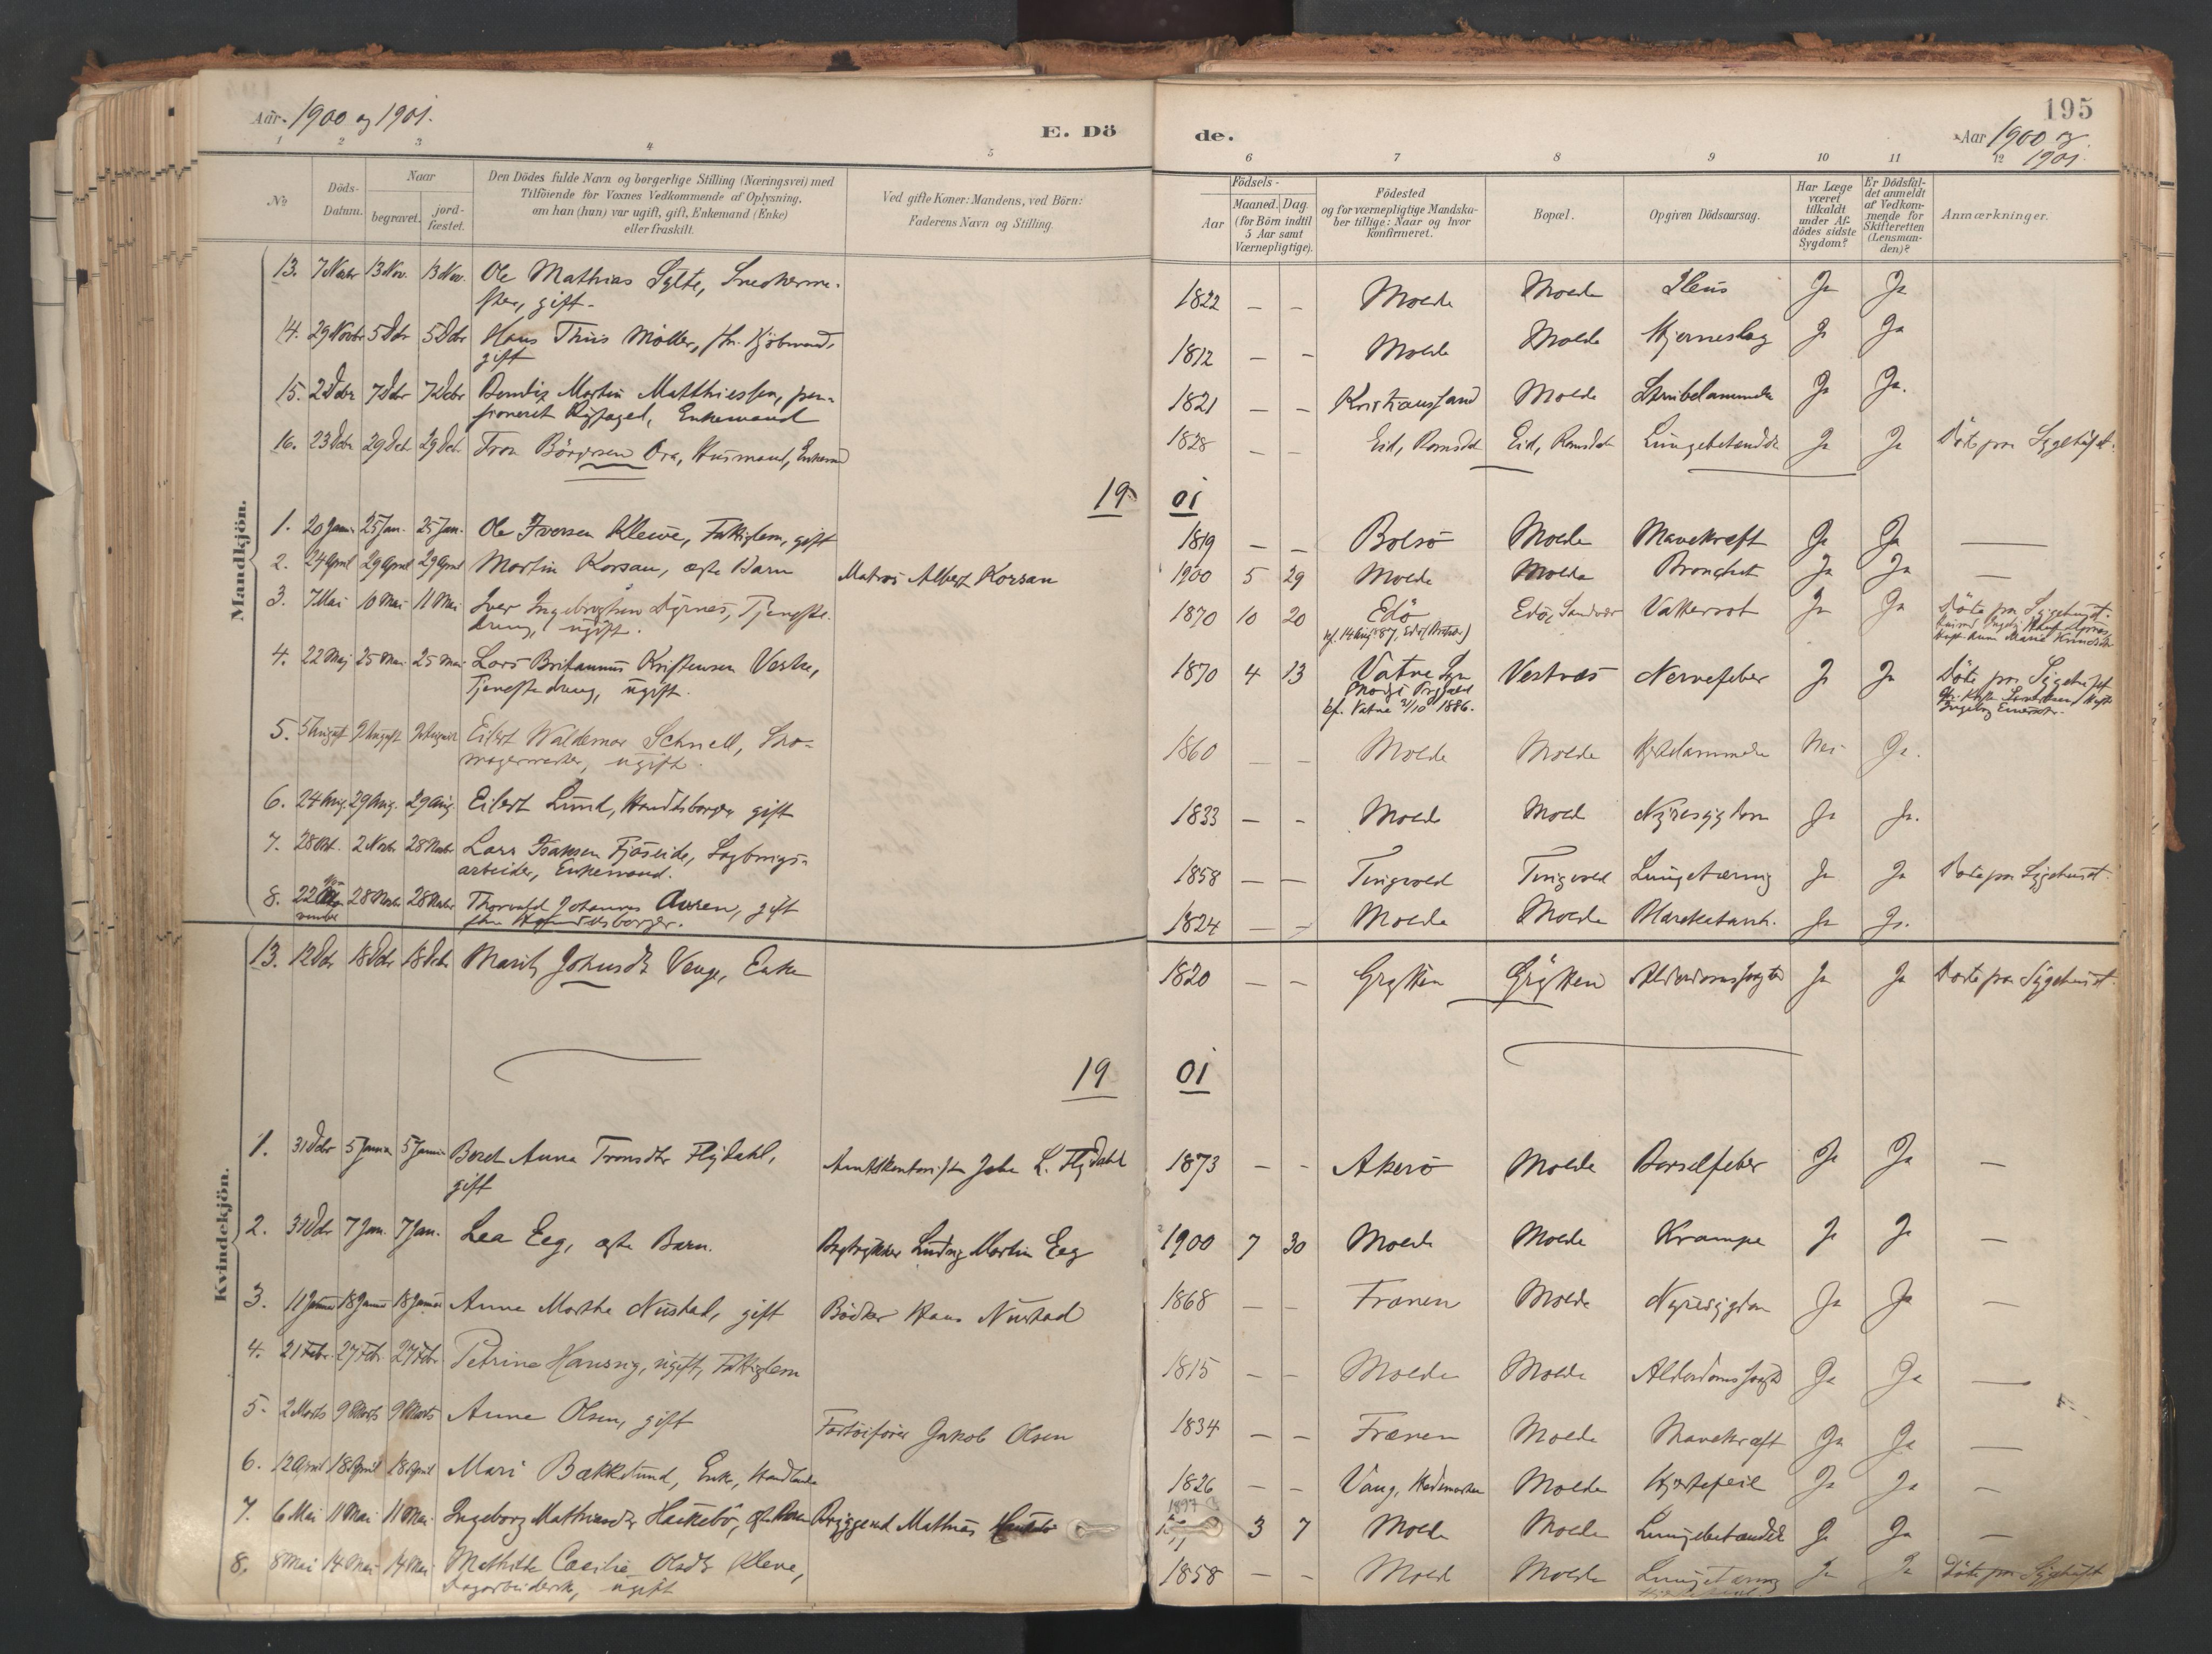 Aar 1900 og 1901.
E. Dö
de.
195
Aar 1900 og
1901.
1 2 3 4 5 6 7 8 9 10 11 12
№
Döds-
Datum.
Naar
begravet.
jord-
fæstet.
Den Dödes fulde Navn og borgerlige Stilling (Næringsvei) med
Tilföiende for Voxnes Vedkommende af Oplysning,
om han (hun) var ugift, gift, Enkemand (Enke)
eller fraskilt.
Ved gifte Koner: Mandens, ved Börn:
Faderens Navn og Stilling.
Födsels-
Aar
Maaned. Dag.
(for Börn indtil
5 Aar samt
Værnepligtige).
Födested
og for værnepligtige Mandska-
ber tillige: Naar og hvor
konfirmeret.
Bopæl.
Opgiven Dödsaarsag.
Har Læge
været
tilkaldt
under Af-
dödes sidste
Sygdom?
Er Dödsfal-
det anmeldt
af Vedkom-
mende for
Skifteretten
(Lensman-
den)?
Anmærkninger.
Mandkjön.
13. 7 Novbr 13 Nov. 13 Nov. Ole Mathias Sylte, Snedkerme-
ster, gift. 1822 — — Molde Molde Ileus Ja Ja
14. 29 Novbr 5 Dcbr 5 Dcbr Hans Thiis Möller, fhv. Kjöbmand,
gift 1812 — — Molde Molde Hjerneslag Ja Ja
15. 2 Dcbr 7 Dcbr 7 Dcbr Bendix Martin Matthiessen, pen-
sioneret Enkemand 1821 — — Kristianssand Molde Strubelammelse Ja Ja.
16. 23 Dcbr 29 Dcbr 29 Dcbr Börgesen Ora, Husmand, Enkemd 1828 — — Eid, Romsdal Eid, Romsdal Lungebetændelse Ja Ja Döde paa Sygehuset.
19 01
1. 20 Janr 25 Jan. 25 Jan. Ole Iversen Kleive, Fattiglem, gift 1819 — — Bolsö Molde Mavekræft Ja Ja —
2. 24 April 29 April 29 April Martin Korsan, ægte Barn Matros Albert Korsan 1900 5 29 Molde Molde Bronchit Ja Ja —
3. 7 Mai 10 Mai 11 Mai Iver Ingebrigtsen Dyrnes, Tjeneste-
dreng, ugift. 1870 10 20 Edö Edö, Vattersot Ja Ja Döde paa Sygehuset.
4. 22 Maj 25 Mai 25 Mai Lars Britannus Kristensen Vestre,
Tjenestedreng, ugift. 1870 4 13 Vatne Vestnæs Nervefeber Ja Ja Döde paa Sygehuset
kf. Vatne 3/10 1886.
5. 5 August 9 August 9 August Eilert Waldemar Schnell, Sko-
magermester, ugift. 1860 — — Molde Molde Hjertelammelse Nei Ja.
6. 24 Aug. 29 Aug. 29 Aug. Eilert Lund, Handelsborger, gift 1833 — — Molde Molde Nyresygdom Ja Ja.
7. 28 Okt. 2 Novbr 28 Novbr Lars Isaksen Fjöseide, Sagbrugs-
arbeider, Enkemand. 1858 — — Tingvold Tingvold Lungetæring Ja Ja Döde paa Sygehuset.
8. 22 No-
vember 28 Novbr 28 Novbr Thorvald Johannes Auren, gift
fhv Handelsborger. 1824 — — Molde Molde Ja Ja.
Kvindekjön.
13. 12 Dcbr 18 Dcbr 18 Dcbr Marit Johnsdtr Venge, Enke 1820 — — Grytten Grytten Alderdomssvaghed Ja Ja Döde paa Sygehuset.
19 01
1. 31 Dcbr 5 Januar 5 Januar Beret Anna Tronsdtr Flydahl,
gift Amtskontorist John L. Flydahl 1873 — — Akerö Molde Barselfeber Ja Ja —
2. 31 Dcbr 7 Jan. 7 Jan. Lea Eeg, ægte Barn. Bogtrykker Ludvig Martin Eeg 1900 7 30 Molde Molde Krampe Ja Ja —
3. 11 Januar 18 Januar 18 Januar Anne Marthe Nustad, gift Bödker Hans Nustad 1868 — — Frænen Molde Nyresygdom Ja Ja —
4. 21 Febr. 27 Febr. 27 Febr Petrine Haussig, ugift, Fattiglem 1815 — — Molde Molde Alderdomssvaghed Ja Ja —
5. 2 Marts 9 Marts 9 Marts Anne Olsen, gift Fartöiförer Jakob Olsen 1834 — — Frænen Molde Mavekræft Ja Ja —
6. 12 April 18 April 18 April Mari Bækkelund, Enke, Handlende 1826 — — Vang, Hedemarken Molde Hjertefeil Ja Ja —
7. 6 Mai 11 Mai 11 Mai Ingeborg Mathiasdtr Haukebö, ægte Barn Bryggesvd Mathias Haukebö 1897 3 7 Molde Molde Lungebetændelse Ja Ja —
8. 8 Mai 14 Mai 14 Mai Mathilde Cæcilie Olsdtr Kleve,
Dagarbeiderske, ugift 1858 — — Molde Molde Lungetæring Ja Ja Döde paa Sygehuset